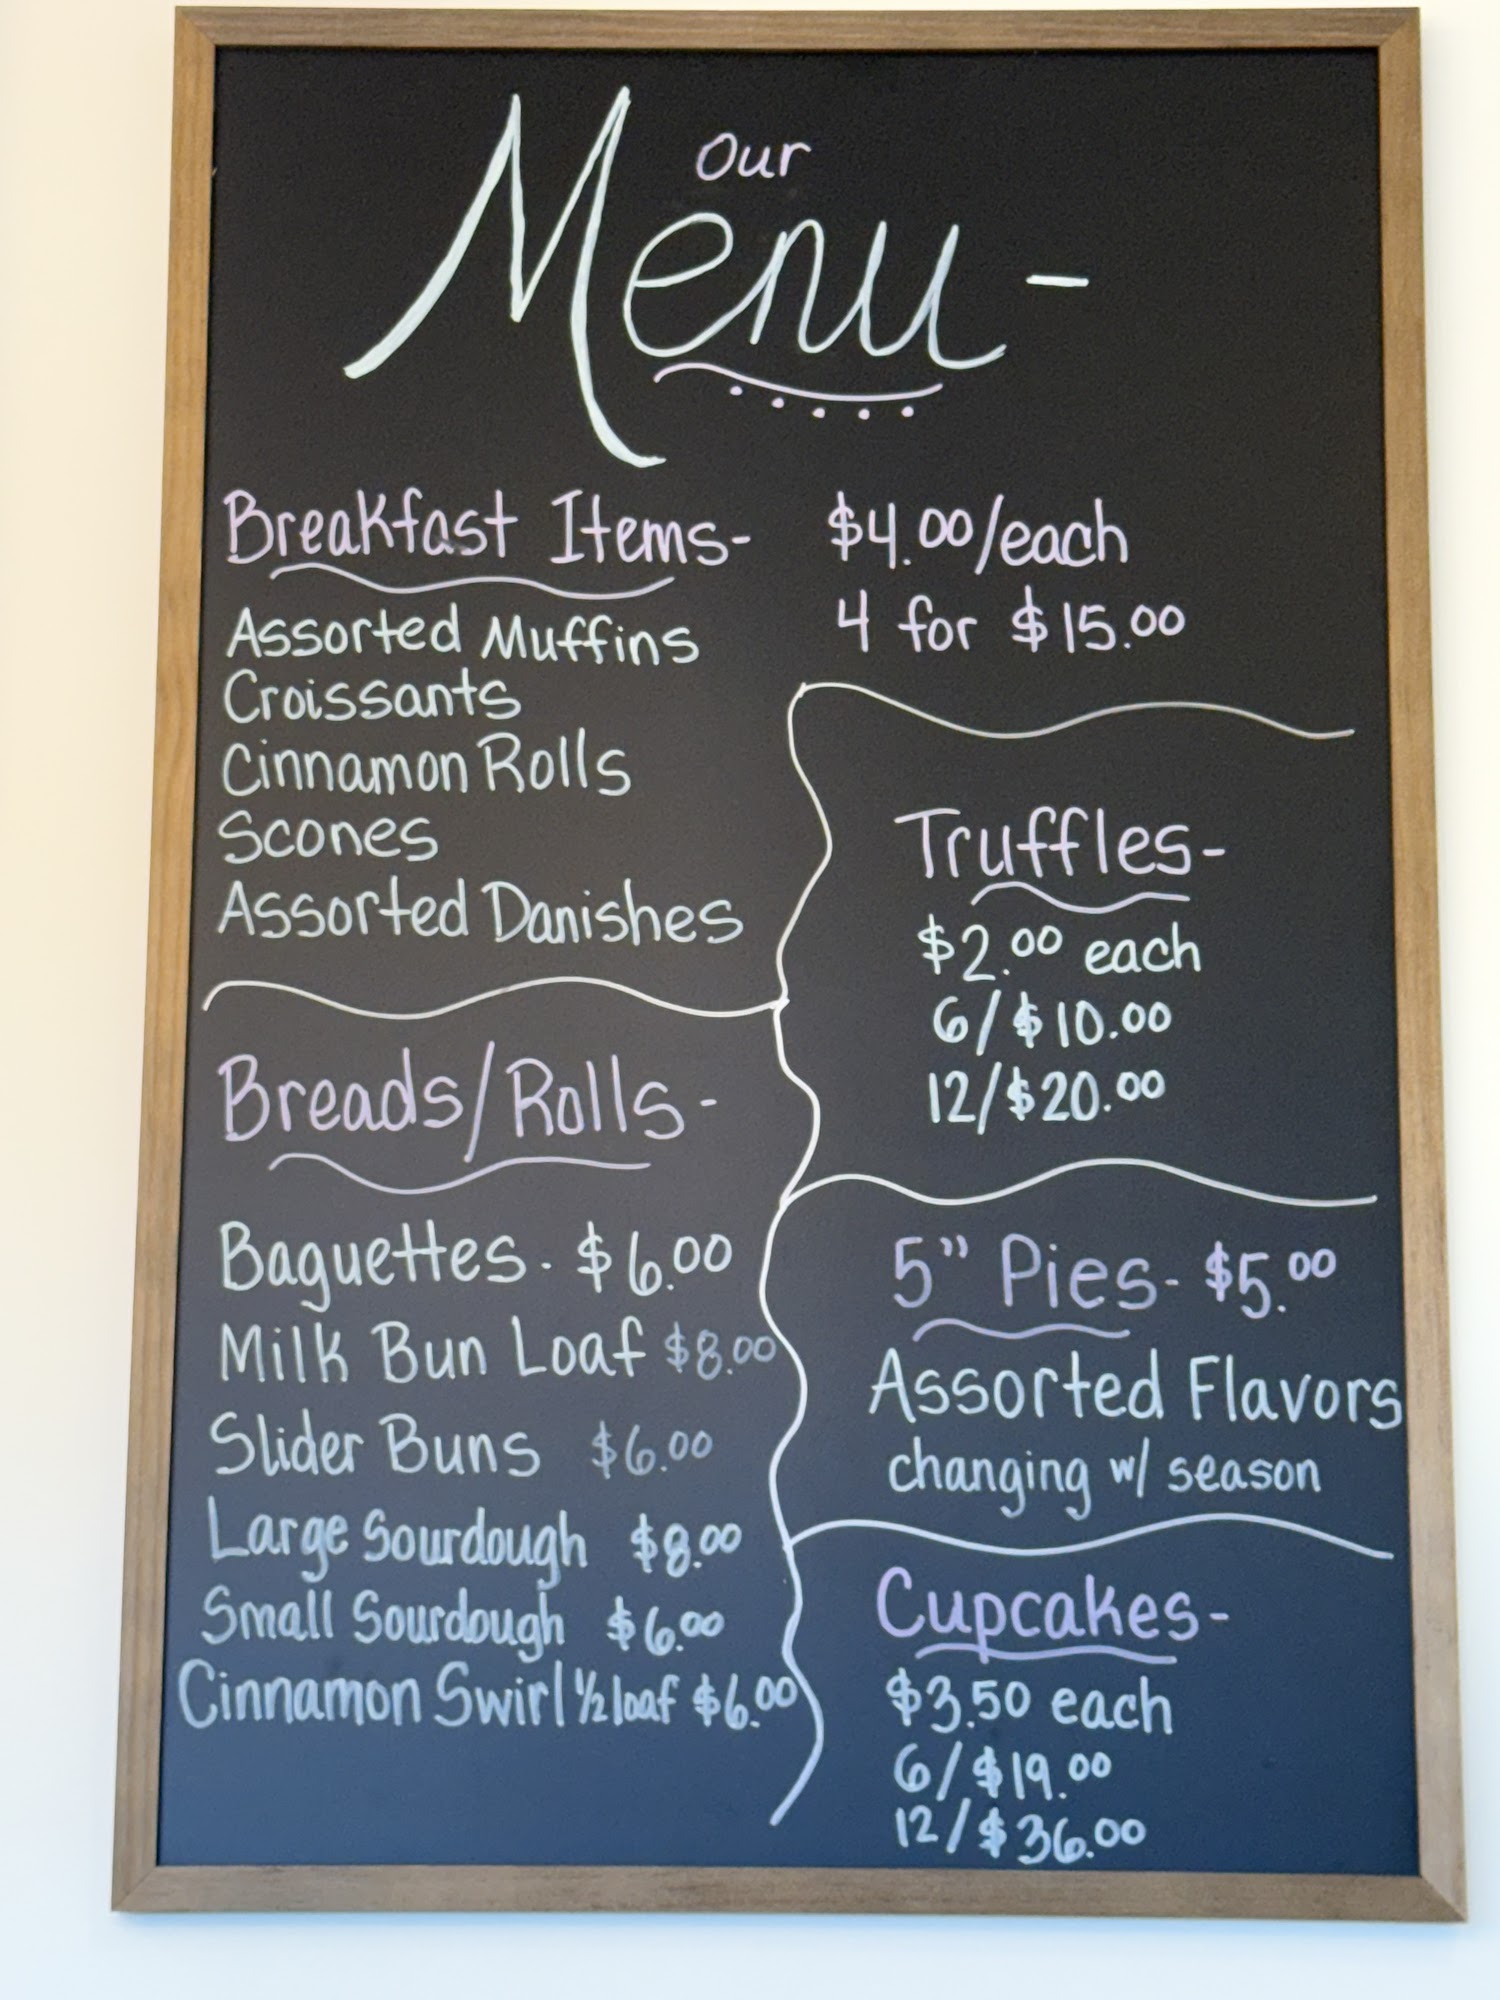 Our
Menu-
Breakfast Items-
$4.00/each
4 for $15.00
Assorted Muffins
Croissants
Cinnamon Rolls
Scones
Assorted Danishes
Breads/Rolls-
Baguettes- $6.00
Milk Bun Loaf $8.00
Slider Buns $6.00
Large Sourdough $8.00
Small Sourdough $6.00
Cinnamon Swirl ½ loaf $6.00
Truffles-
$2.00 each
6/$10.00
12/$20.00
5" Pies- $5.00
Assorted Flavors
changing w/ season
Cupcakes-
$3.50 each
6/$19.00
12/$36.00